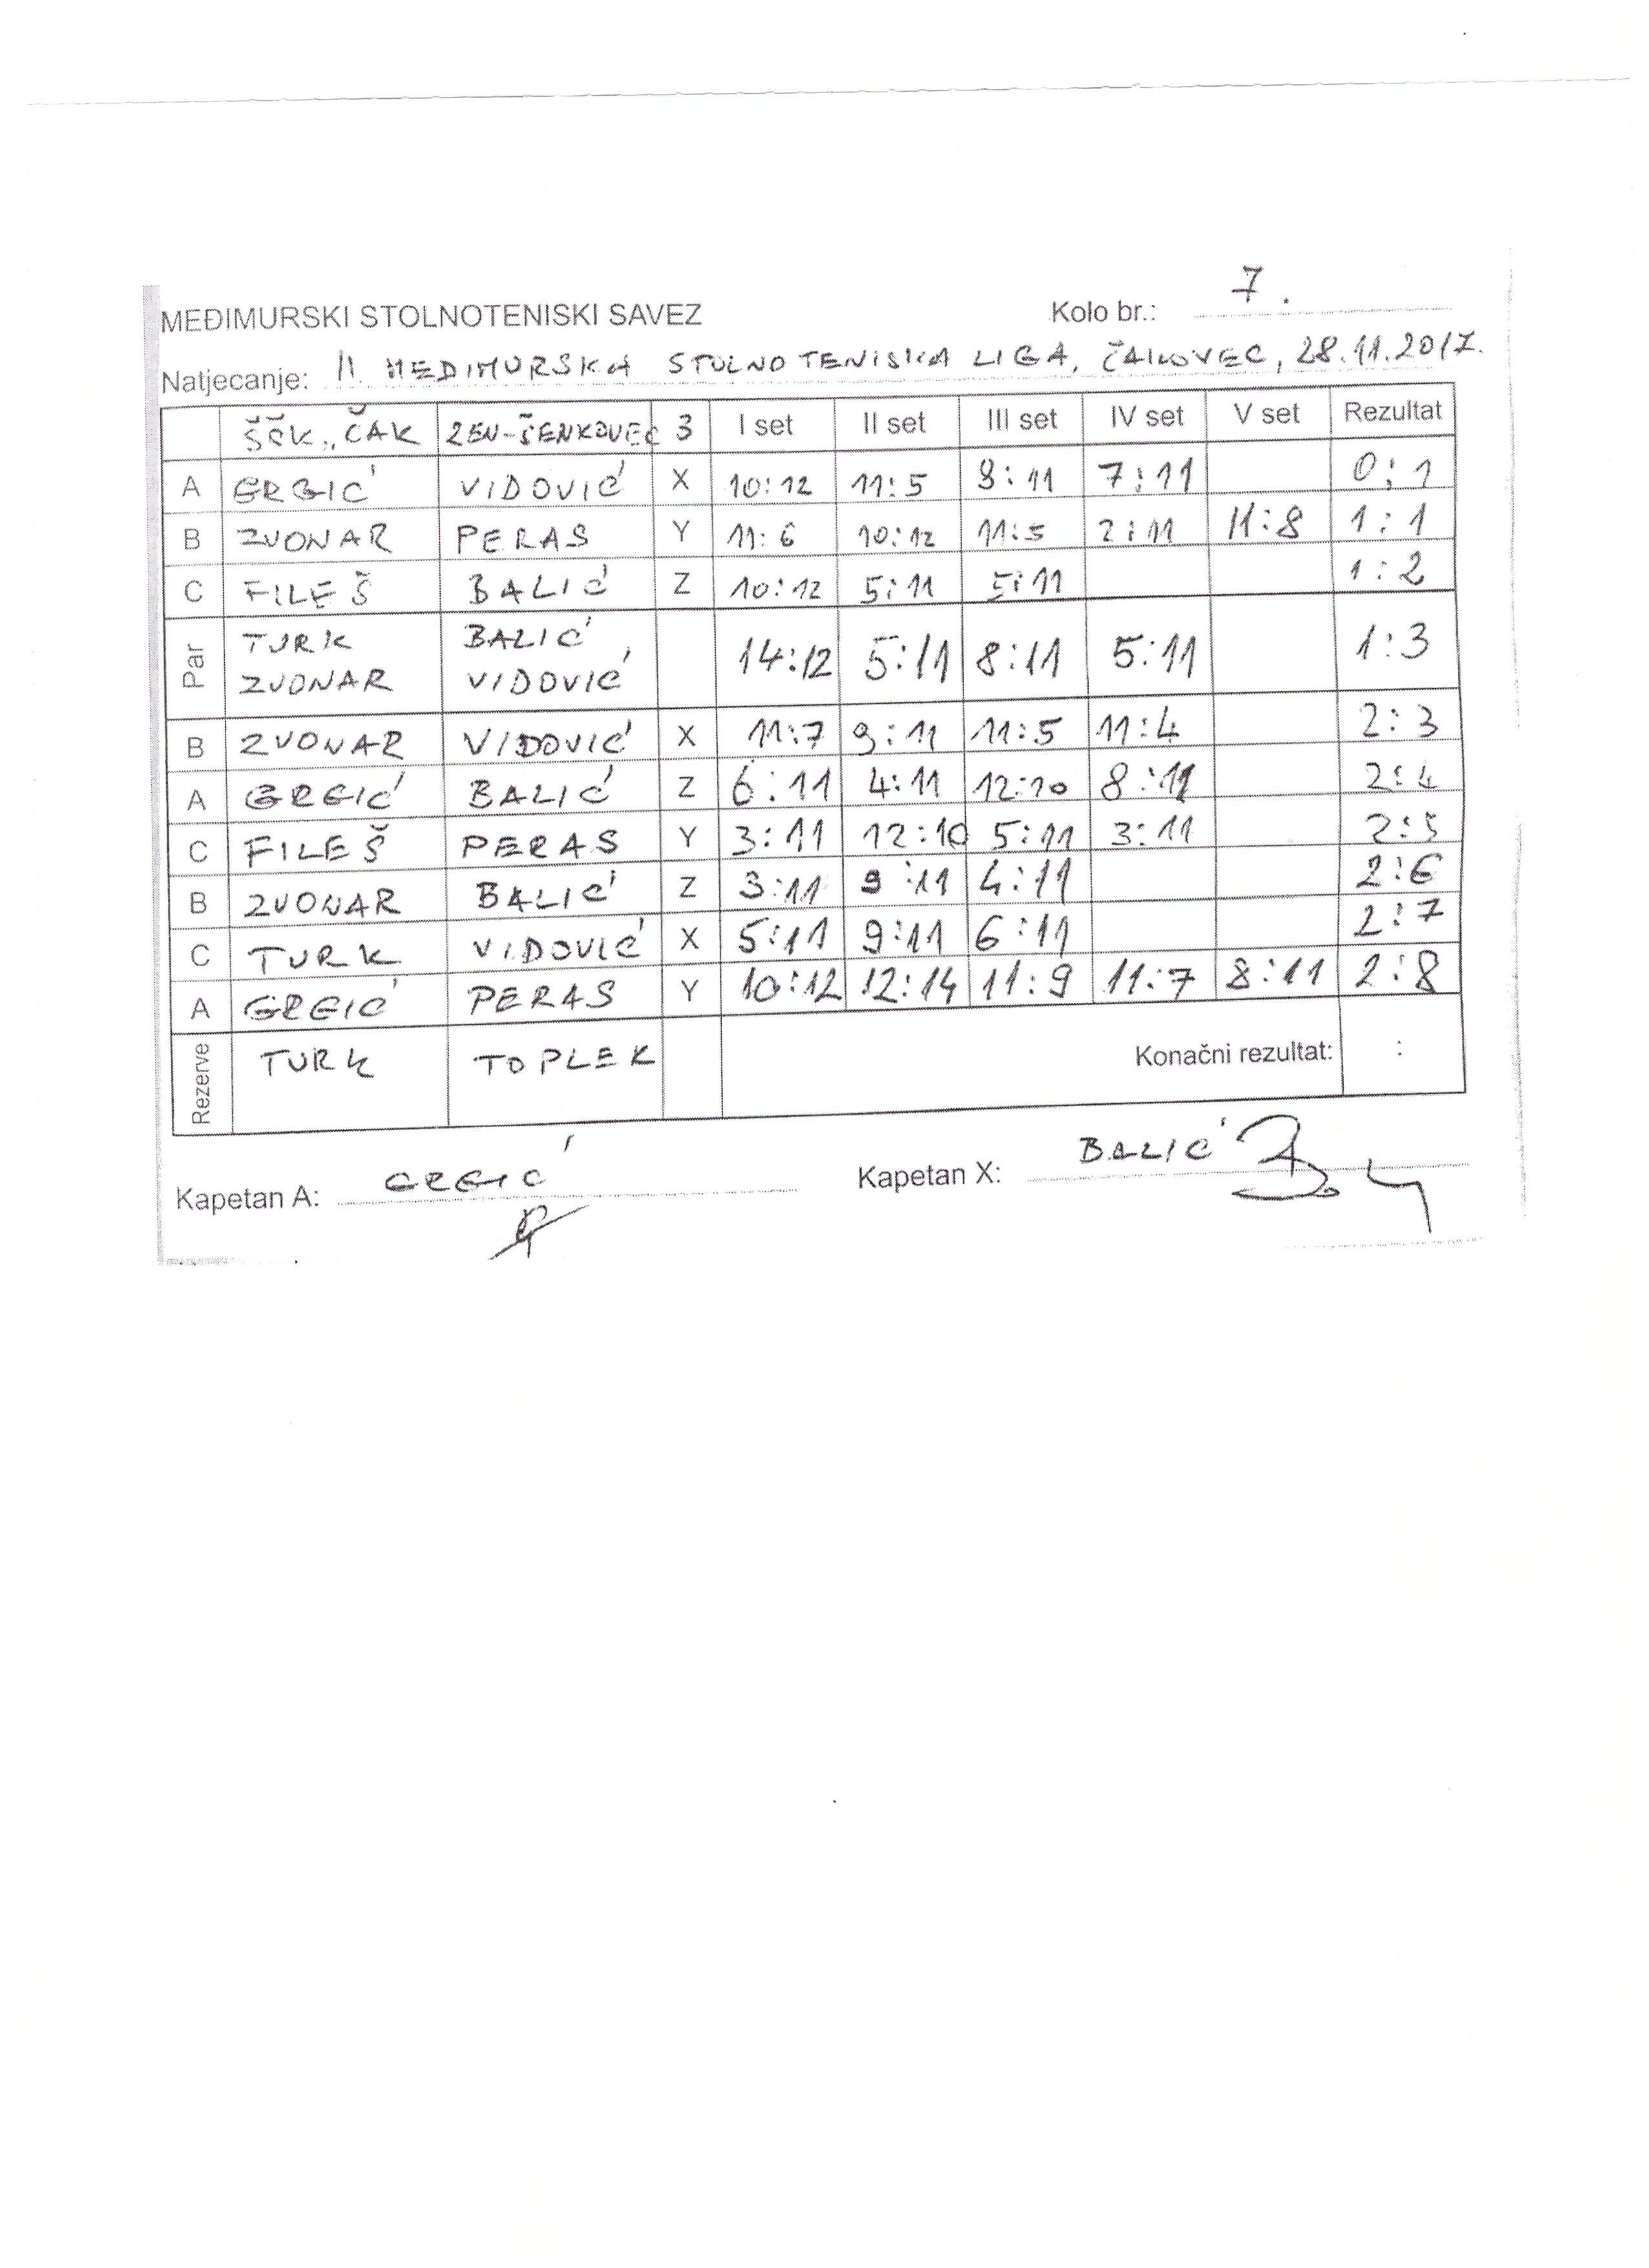 7.
MEĐIMURSKI STOLNOTENISKI SAVEZ Kolo br.:
Natjecanje: II MEDIMURSKA STOLNO TENISKA LIGA, ČAKOVEC, 28.11.2017.
ŠŠK,, ČAK ZEN-ŠENKOVEC 3 I set II set III set IV set V set Rezultat
A GRGIĆ VIDOVIĆ X 10:12 11:5 8:11 7:11 0:1
B ZVONAR PERAS Y 11:6 10:12 11:5 2:11 11:8 1:1
C FILEŠ BALIĆ Z 10:12 5:11 5:11 1:2
Par TURK ZVONAR BALIĆ VIDOVIĆ 14:12 5:11 8:11 5:11 1:3
B ZVONAR VIDOVIĆ X 11:7 9:11 11:5 11:4 2:3
A GRGIĆ BALIĆ Z 6:11 4:11 12:10 8:11 2:4
C FILEŠ PERAS Y 3:11 12:10 5:11 3:11 2:5
B ZVONAR BALIĆ Z 3:11 9:11 4:11 2:6
C TURK VIDOVIĆ X 5:11 9:11 6:11 2:7
A GRGIĆ PERAS Y 10:12 12:14 11:9 11:7 8:11 2:8
Rezerve TURK TOPLEK Konačni rezultat: :
Kapetan A: GRGIĆ Kapetan X: BALIĆ